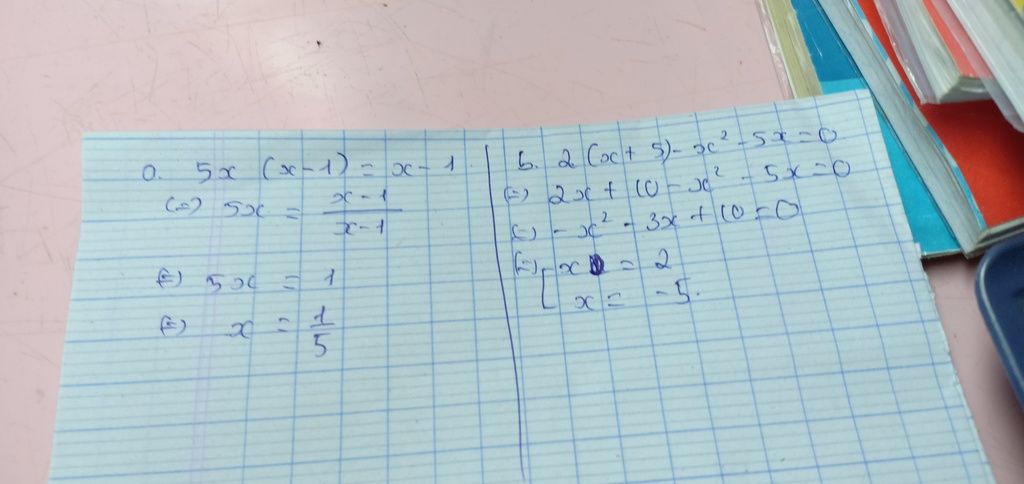 a. 5x (x-1) = x-1.
(=) 5x = \frac{x-1}{x-1}
(=) 5x = 1
(=) x = \frac{1}{5}
b. 2 (x+5) - x² - 5x = 0
(=) 2x + 10 - x² - 5x = 0
(=) - x² - 3x + 10 = 0
(=) [ x = 2
x = -5.